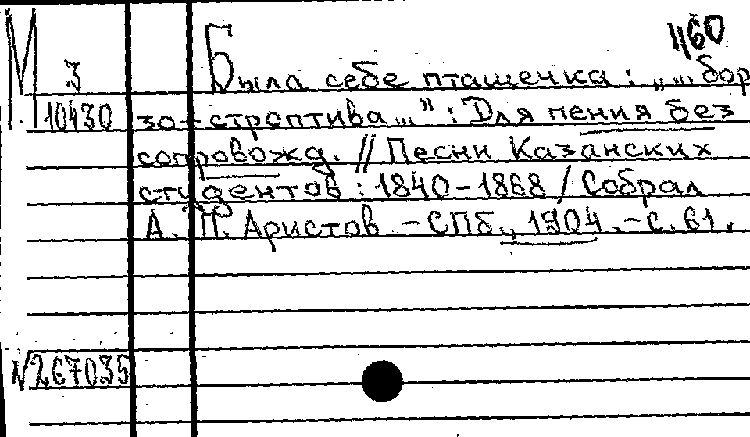 1160
М 3 Была себе пташечка: „... бор
10430 зо-строптива..." : Для пения без
сопровожд. // Песни Казанских
студентов : 1840-1868 / Собрал
А. П. Аристов. - СПб., 1904. - С. 61.
№267035